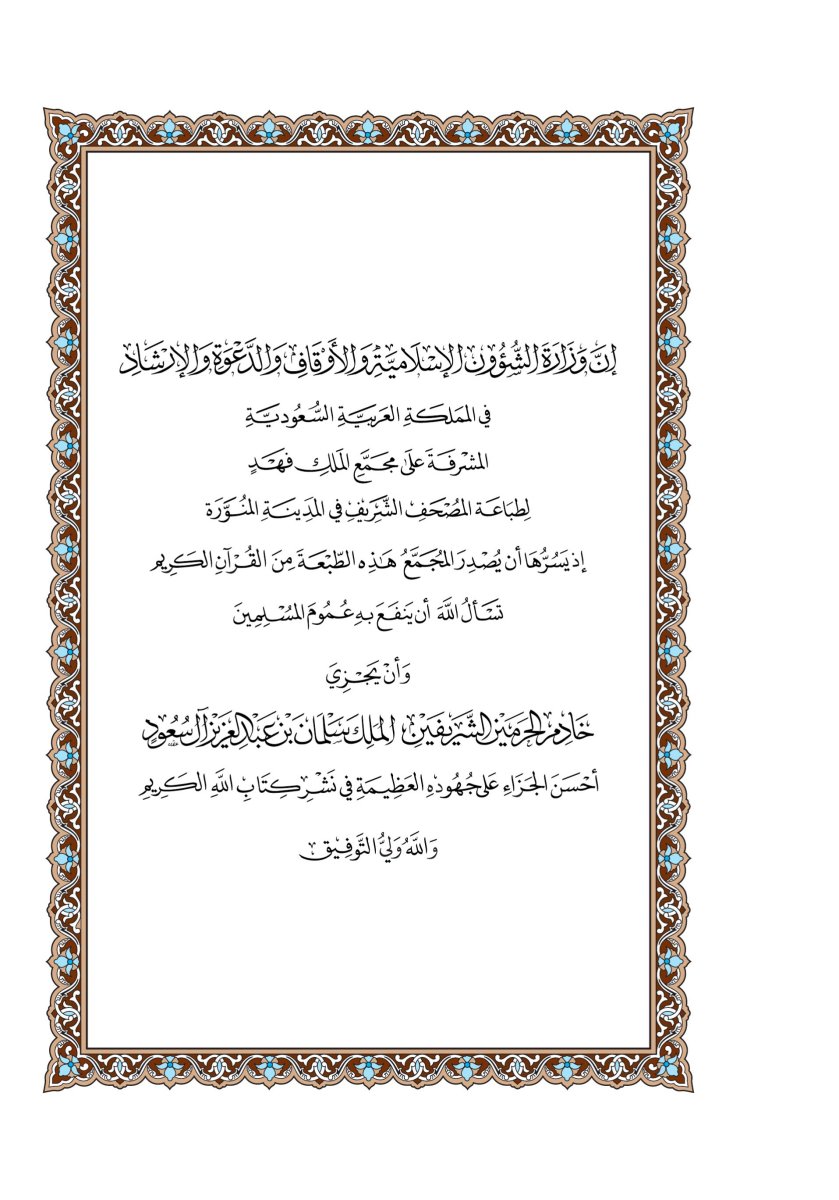 إِنَّ وَزَارَةَ الشُّؤُونِ الإِسْلَامِيَّةِ وَالأَوْقَافِ وَالدَّعْوَةِ وَالإِرْشَادِ
فِي المَمْلَكَةِ العَرَبِيَّةِ السُّعُودِيَّةِ
المُشْرِفَةَ عَلَى مُجَمَّعِ المَلِكِ فَهْدٍ
لِطِبَاعَةِ المُصْحَفِ الشَّرِيفِ فِي المَدِينَةِ المُنَوَّرَةِ
إِذ يَسُرُّهَا أَن يُصْدِرَ المُجَمَّعُ هَٰذِهِ الطَّبْعَةَ مِنَ القُرْآنِ الكَرِيمِ
تَسْأَلُ اللَّهَ أَن يَنفَعَ بِهِ عُمُومَ المُسْلِمِينَ
وَأَنْ يَجْزِيَ
خَادِمَ الحَرَمَيْنِ الشَّرِيفَيْنِ المَلِكَ سَلْمَانَ بْنَ عَبْدِ العَزِيزِ آل سُعُودٍ
أَحْسَنَ الجَزَاءِ عَلَى جُهُودِهِ العَظِيمَةِ فِي نَشْرِ كِتَابِ اللَّهِ الكَرِيمِ
وَاللَّهُ وَلِيُّ التَّوْفِيقِ